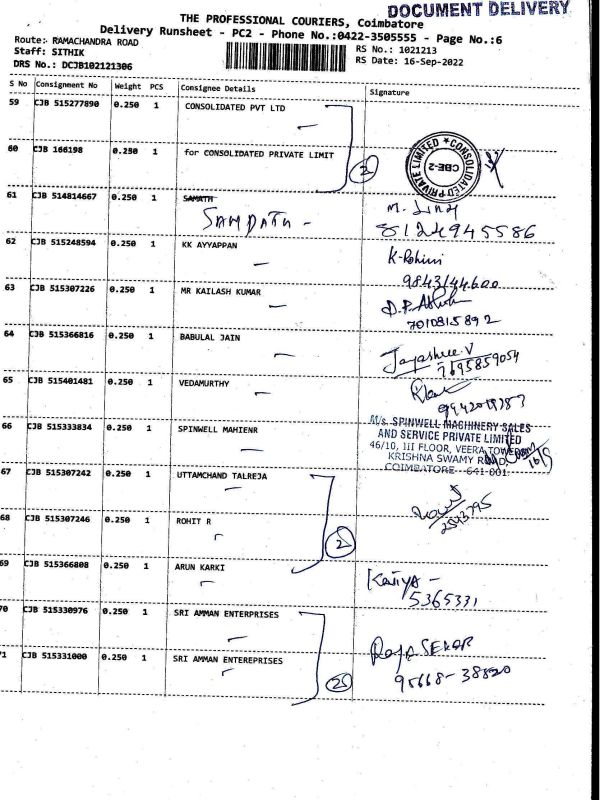 DOCUMENT DELIVERY
THE PROFESSIONAL COURIERS, Coimbatore
Delivery Runsheet - PC2 - Phone No.:0422-3505555 - Page No.:6
Route:- RAMACHANDRA ROAD
Staff: SITHIK
DRS No.: DCJB102121306
RS No.: 1021213
RS Date: 16-Sep-2022
S No Consignment No Weight PCS Consignee Details Signature
59 CJB 515277890 0.250 1 CONSOLIDATED PVT LTD
60 CJB 166198 0.250 1 for CONSOLIDATED PRIVATE LIMIT
2
CONSOLIDATED PRIVATE LIMITED
CBE-2
61 CJB 514814667 0.250 1 SAMATH
SAMPATH -
8124945586
62 CJB 515248594 0.250 1 KK AYYAPPAN
K-Rohini
9843144600
63 CJB 515307226 0.250 1 MR KAILASH KUMAR
7010815892
64 CJB 515366816 0.250 1 BABULAL JAIN
Jayashree.V
7695859054
65 CJB 515401481 0.250 1 VEDAMURTHY
66 CJB 515333834 0.250 1 SPINWELL MAHIENR
M/s. SPINWELL MACHINERY SALES
AND SERVICE PRIVATE LIMITED
46/10, III FLOOR, VEERA TOWERS
KRISHNA SWAMY ROAD,
COIMBATORE - 641 001.
67 CJB 515307242 0.250 1 UTTAMCHAND TALREJA
2543795
68 CJB 515307246 0.250 1 ROHIT R
2
69 CJB 515366808 0.250 1 ARUN KARKI
Kaviya -
5365331
70 CJB 515330976 0.250 1 SRI AMMAN ENTERPRISES
71 CJB 515331000 0.250 1 SRI AMMAN ENTEREPRISES
RAJA SEKAR
95668-38820